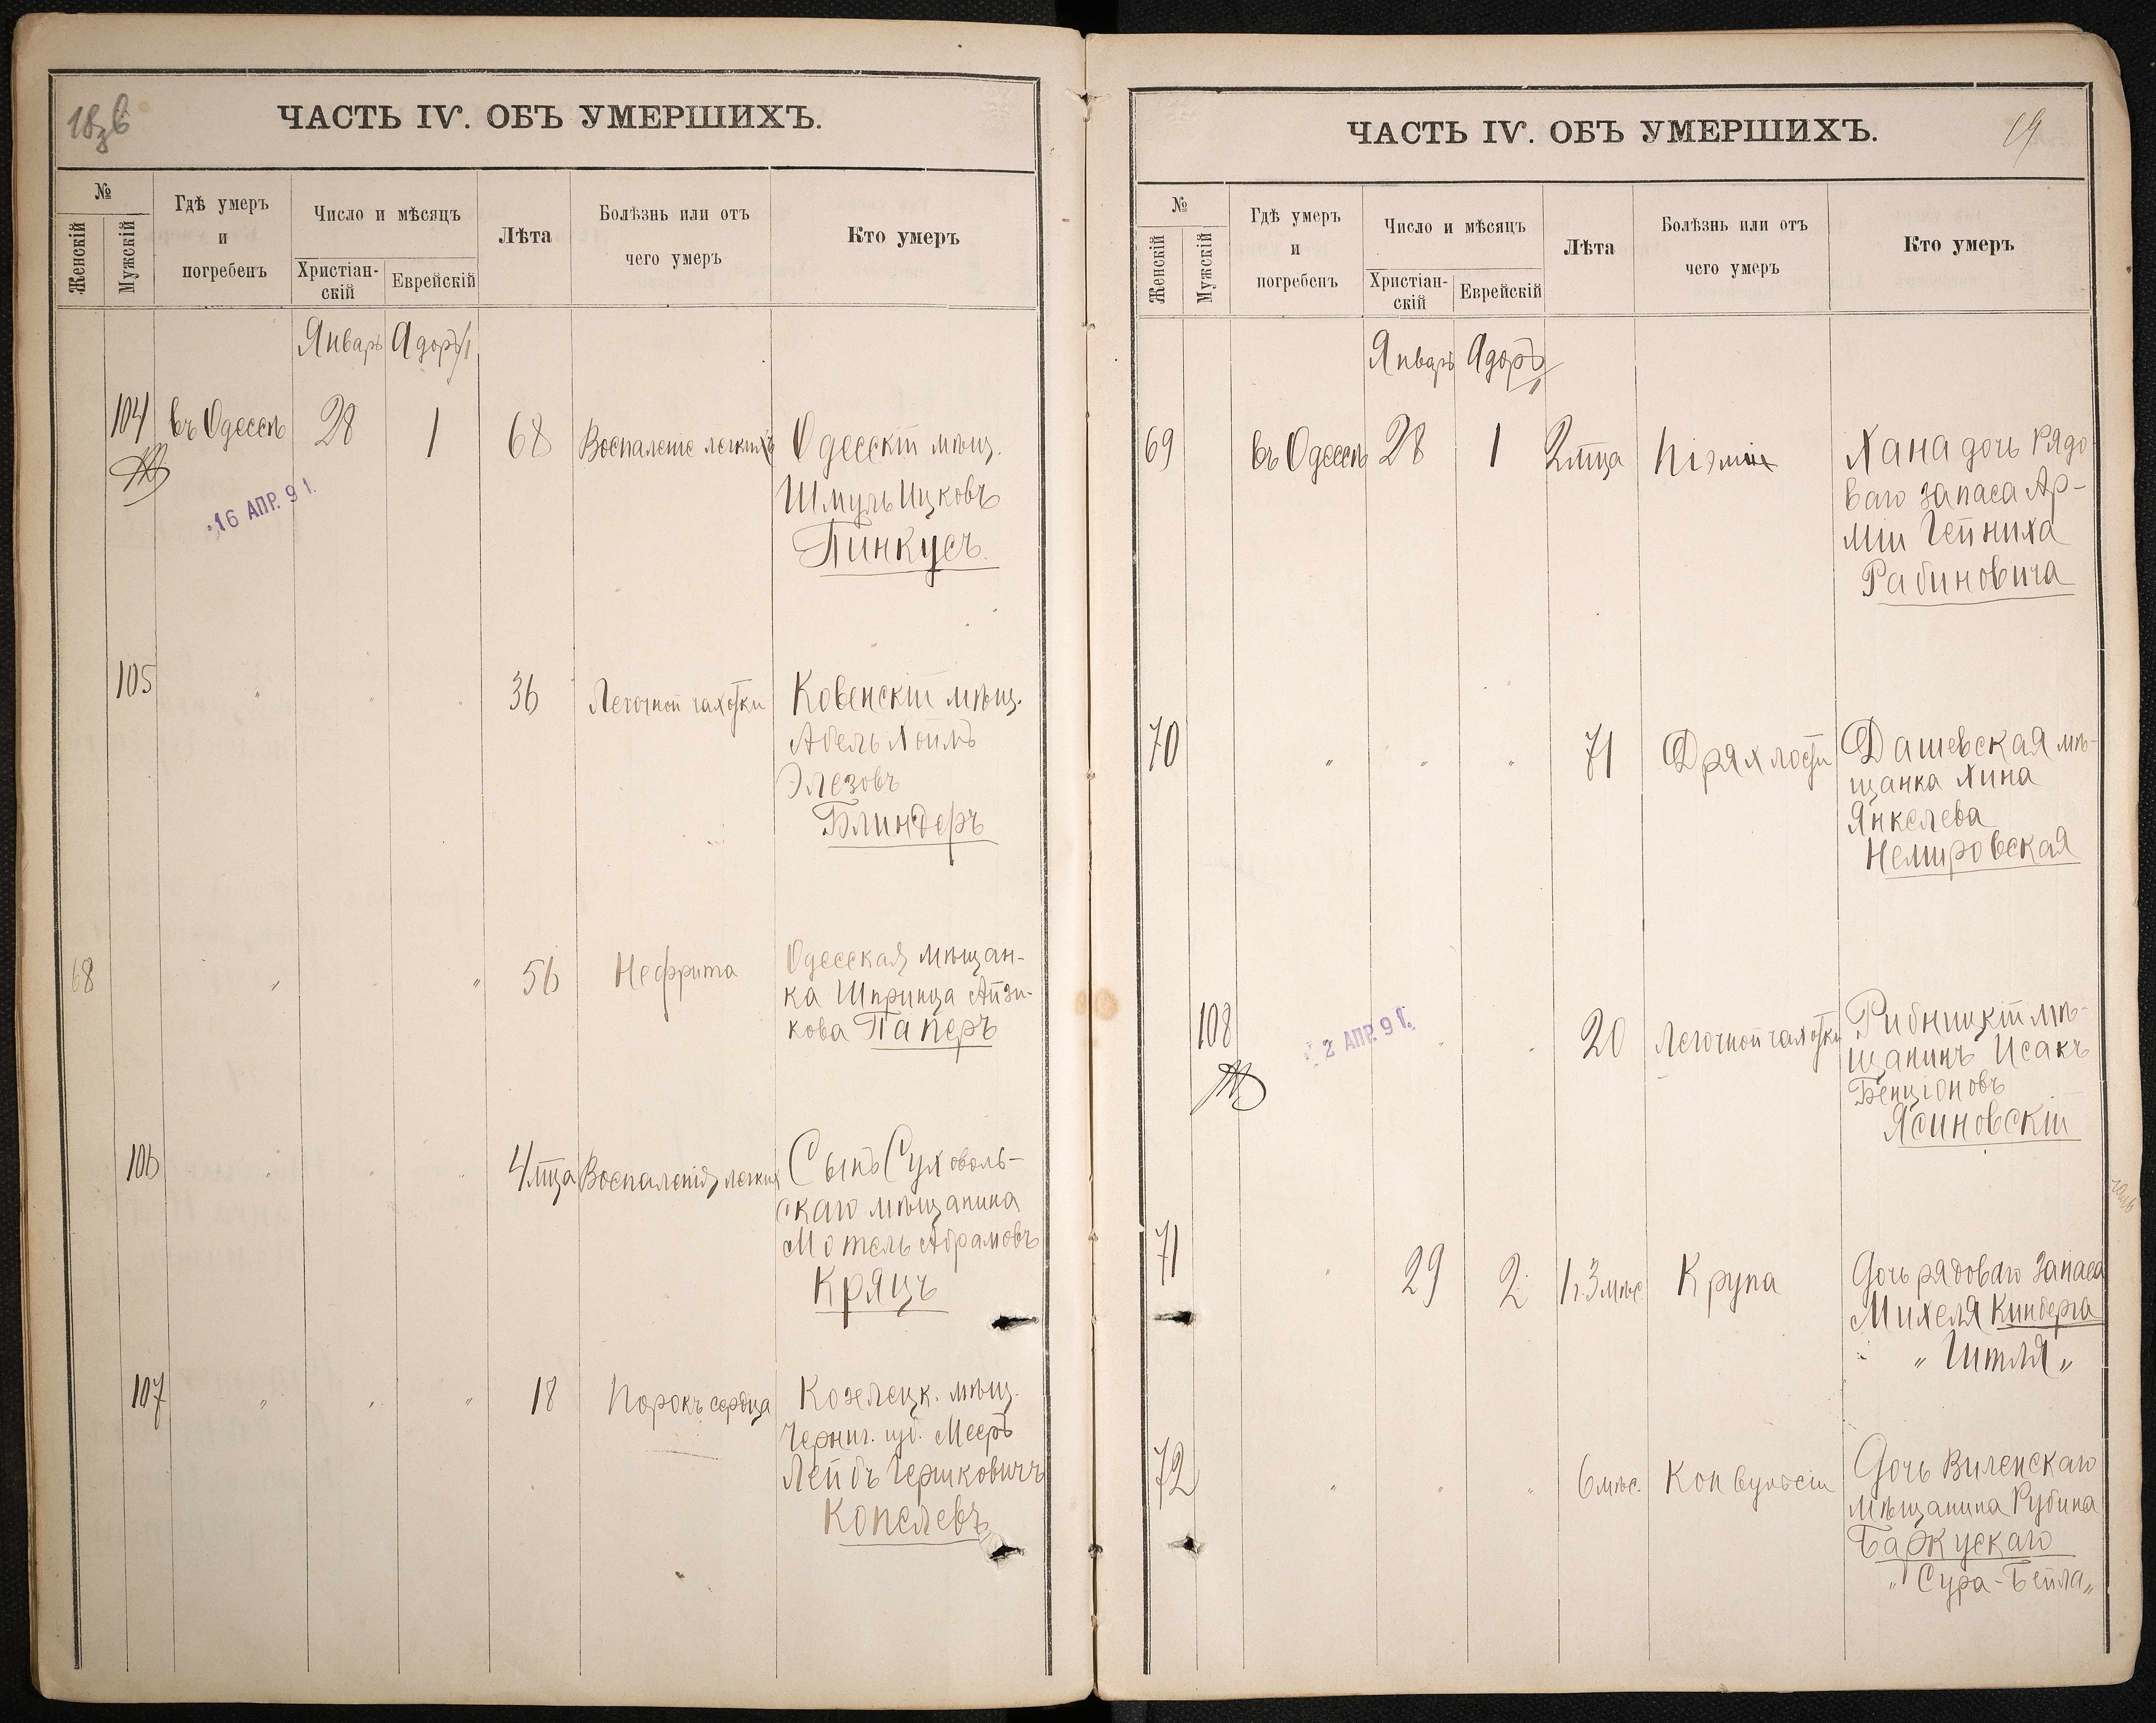 18об
ЧАСТЬ IV. ОБЪ УМЕРШИХЪ.
№
Женскій
Мужскій
Гдѣ умеръ
и
погребенъ
Число и мѣсяцъ
Христіан-
скій
Еврейскій
Лѣта
Болѣзнь или отъ
чего умеръ
Кто умеръ
Январь Адоръ I
104 въ Одессѣ 28 1 68 Воспаленіе легкихъ Одесскій мѣщ.
Шмуль Ицковъ
Пинкусъ
16 АПР. 91.
105 " " " 36 Легочной чахотки Ковенскій мѣщ.
Абель Хоимъ
Элезовъ
Блиндеръ
68 " " " 56 Нефрита Одесская мѣщан-
ка Шпринца Айзи-
кова Паперъ
106 " " " 4 мца Воспаленія легких Сынъ Суховоль-
скаго мѣщанина
Мотель Абрамовъ
Кряцъ
107 " " " 18 Порокъ сердца Козелецк. мѣщ.
Черниг. губ. Мееръ
Лейбъ Гершковичъ
Копелевъ
ЧАСТЬ IV. ОБЪ УМЕРШИХЪ.
19
№
Женскій
Мужскій
Гдѣ умеръ
и
погребенъ
Число и мѣсяцъ
Христіан-
скій
Еврейскій
Лѣта
Болѣзнь или отъ
чего умеръ
Кто умеръ
Январь Адоръ I
69 въ Одессѣ 28 1 2 мца Піэміи Хана дочь рядо
ваго запаса Ар-
міи Гейниха
Рабиновича
70 " " " 71 Дряхлости Дашевская мѣ-
щанка Хина
Янкелева
Немировская
108 " " 20 Легочной чахотки Рибницкій мѣ-
щанинъ Исакъ
Бенціоновъ
Ясиновскій
2 АПР. 91.
71 " 29 2 1 г. 3 мѣс. Крупа Дочь рядоваго запаса
Михеля Кинберга
" Гитля "
72 " " " 6 мѣс. Конвульсіи Дочь Виленскаго
мѣщанина Рубина
Баржускаго
" Сура-Бейла "